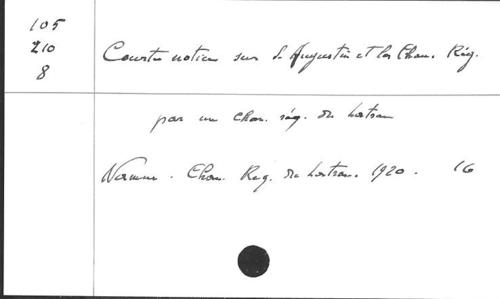 105
210
8
Courte notice sur S. Augustin et les Chan. Rég.
par un chan. rég. de Latran
Chan. Reg. de Latran. 1920. 16